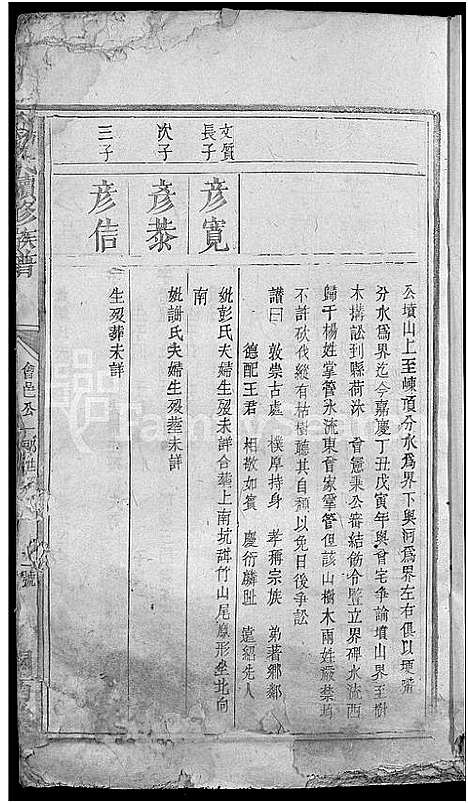 公墳山上至崠頂分水爲界下與河爲界左右俱以埂嘴
分水爲界迄今嘉慶丁丑戊寅年與曾宅爭論墳山界至樹
木搆訟到縣荷沐 曾憲秉公審結飭令豎立界碑水流西
歸于楊姓掌管水流東曾家掌管但該山樹木兩姓嚴禁均
不許砍伐縱有枯樹聽其自頹以免日後爭訟
譜曰 敦崇古處 樸厚持身 孝稱宗族 弟著鄉鄰
德配王君 相敬如賓 慶衍麟趾 遠紹先人
文質長子
彥寬
妣彭氏夫婦生歿未詳合葬上南坑諿竹山尾鳳形坐北向
南
次子
彥恭
妣謝氏夫婦生歿葬未詳
三子
彥信
生歿葬未詳
氏續修族譜
會邑
號
FamilySearch